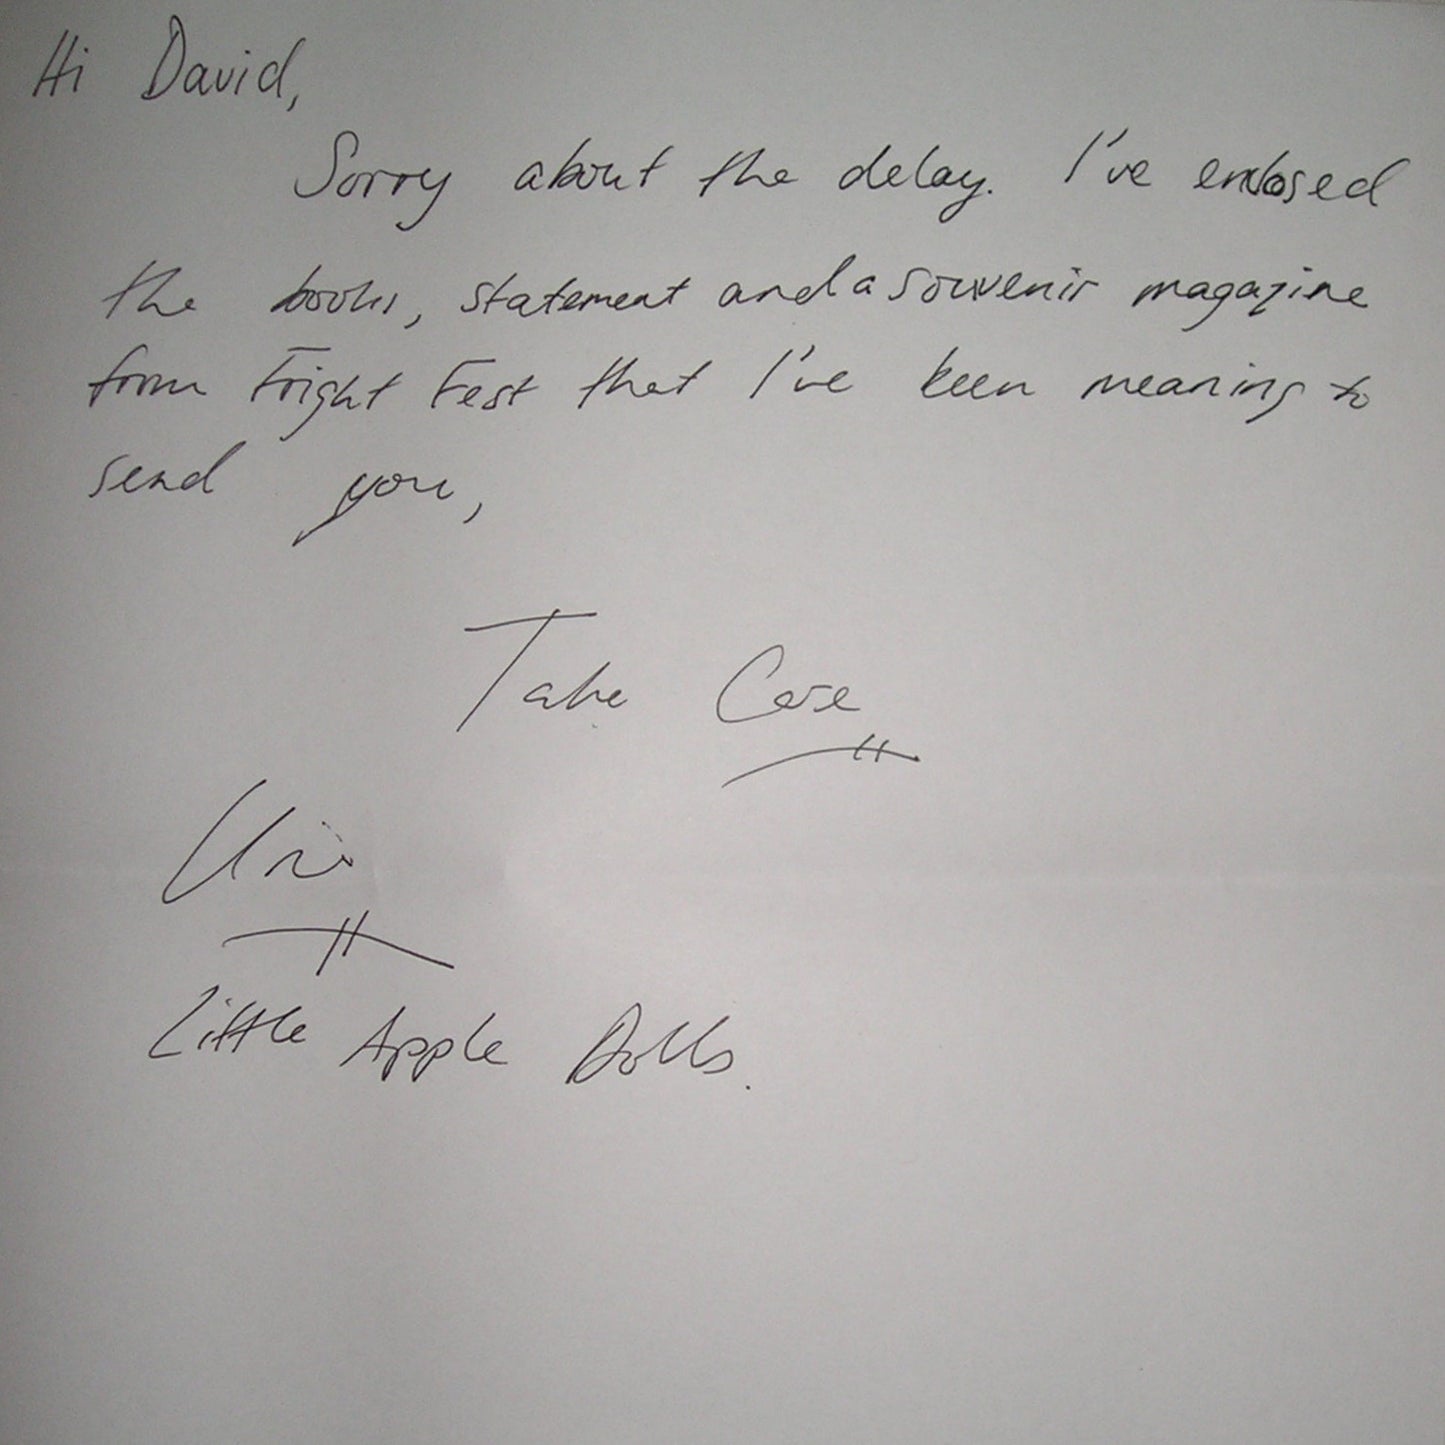 Hi David,
Sorry about the delay. I've enclosed
the books, statement and a souvenir magazine
from Fright Fest that I've been meaning to
send you,
Take Care
Little Apple Dolls.